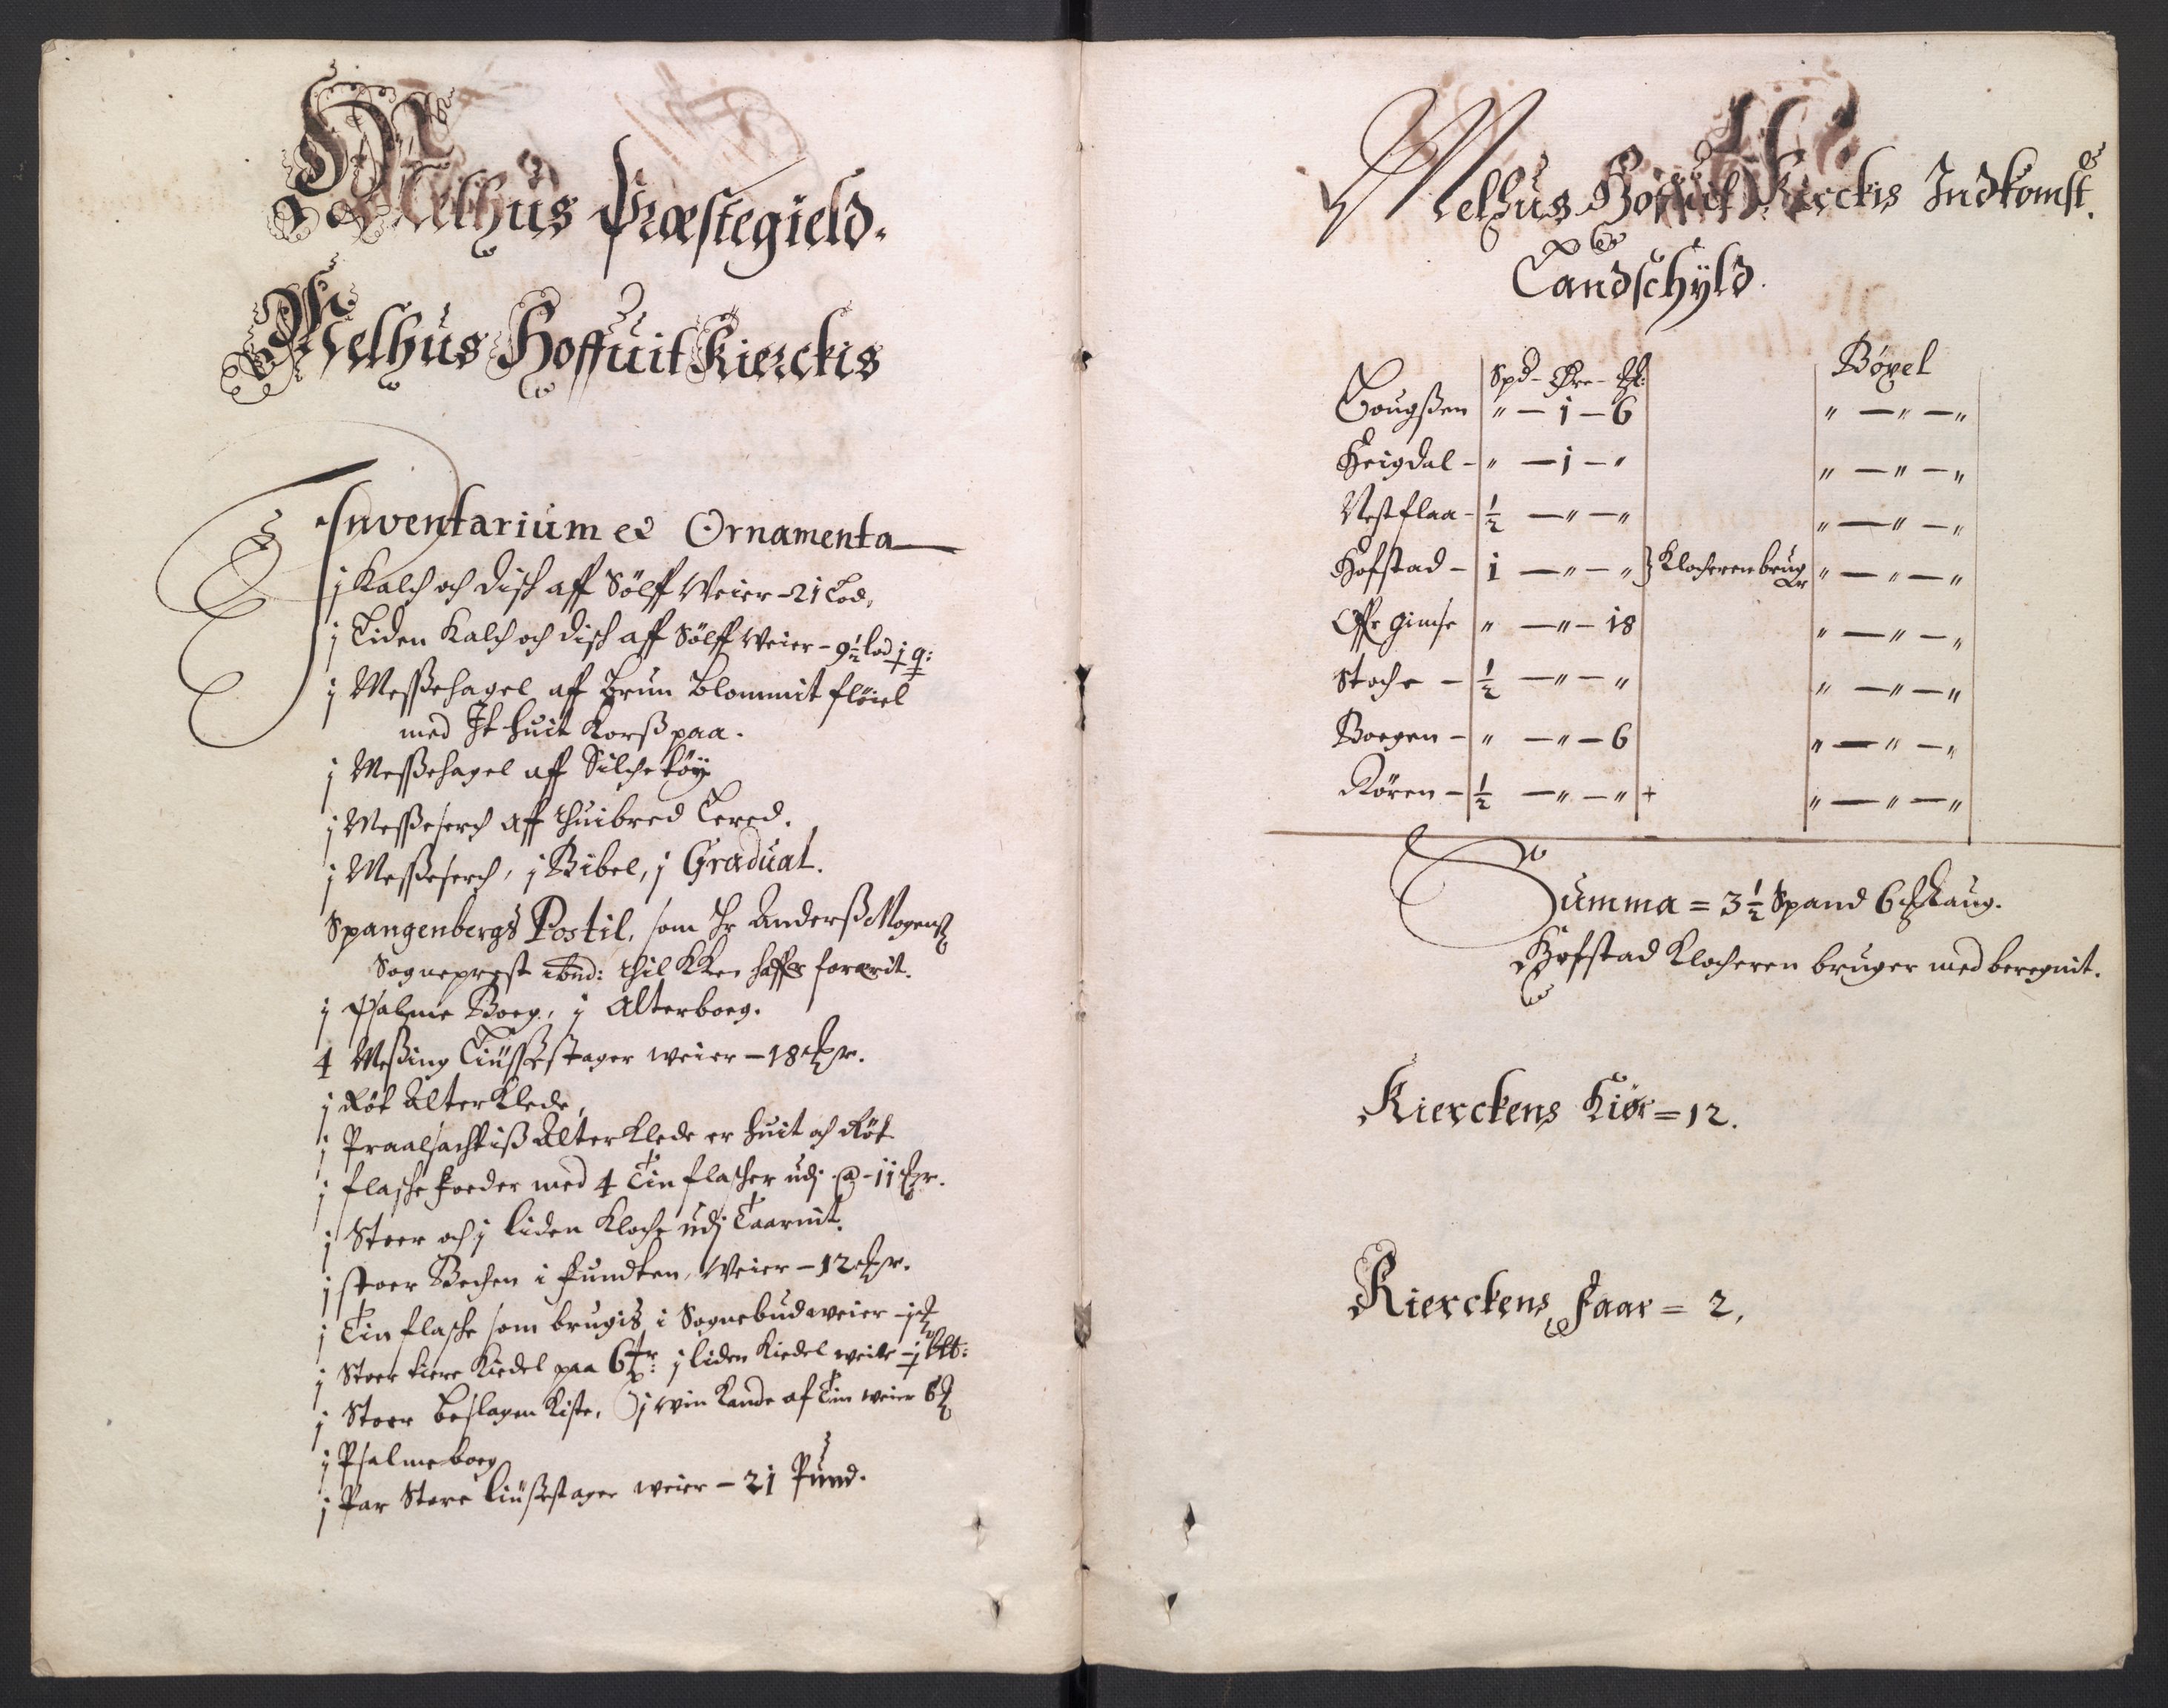 Melhus Præstegield.
Melhus Hoffuit Kierckis
Inventarium et Ornamenta
j Kalch och Disch aff Sölff Weier - 21 Lod,
j Liden Kalch och disch aff Sölff Weier - 9½ lod j q:
j Messehagel aff brun blommit flöiel
med It huit Korss paa.
j Messehagel aff Silche töÿ
j Messeserch aff thuibred Lered.
j Messeserch, j Bibel, j Gradual.
Spangenbergs Postil, som Hr Anderss Mogens
Sogneprest ibnd: thil KKen haffr forærit.
j Psalme Boeg, j Alterboeg.
4 Messing Liusse stager weier - 18
j Röt Alter Klede,
j Alter Klede er huit och Röt
j flasche foeder med 4 Tin flascher udj @ - 11
j Stoer och j liden Kloche udj Taarnit.
j stoer Bechen i fundten, Weier - 12
j Tin flasche som brugis i Sognebud weier - j
j Stoer tiere Kiedel paa 6 j liden Kiedel weier - j
j Stoer beslagen Kiste, j win Kande af Tin weier 6
j Psalmeboeg
j Par Store Liussestager weier - 21 Pund.
Melhus Hoffuit Kierckis Indkomst.
Landschÿld.
Spd - Øre - Bÿxel
Hougssen " - 1 - 6 " - " - "
Heigdal - " - 1 - " " - " - "
Vestflaa - ½ - " - " " - " - "
Hofstad - 1 - " - " } Klocheren bruger " - " - "
Offr gimse " - " - 18 " - " - "
Stoche - ½ - " - " " - " - "
Boegen - " - " - 6 " - " - "
Kören - ½ - " - " + " - " - "
Summa = 3½ Spand 6 Mk laug.
Hofstad Klocheren bruger med beregnit.
Kierckens Kiør = 12.
Kierckens faar = 2.